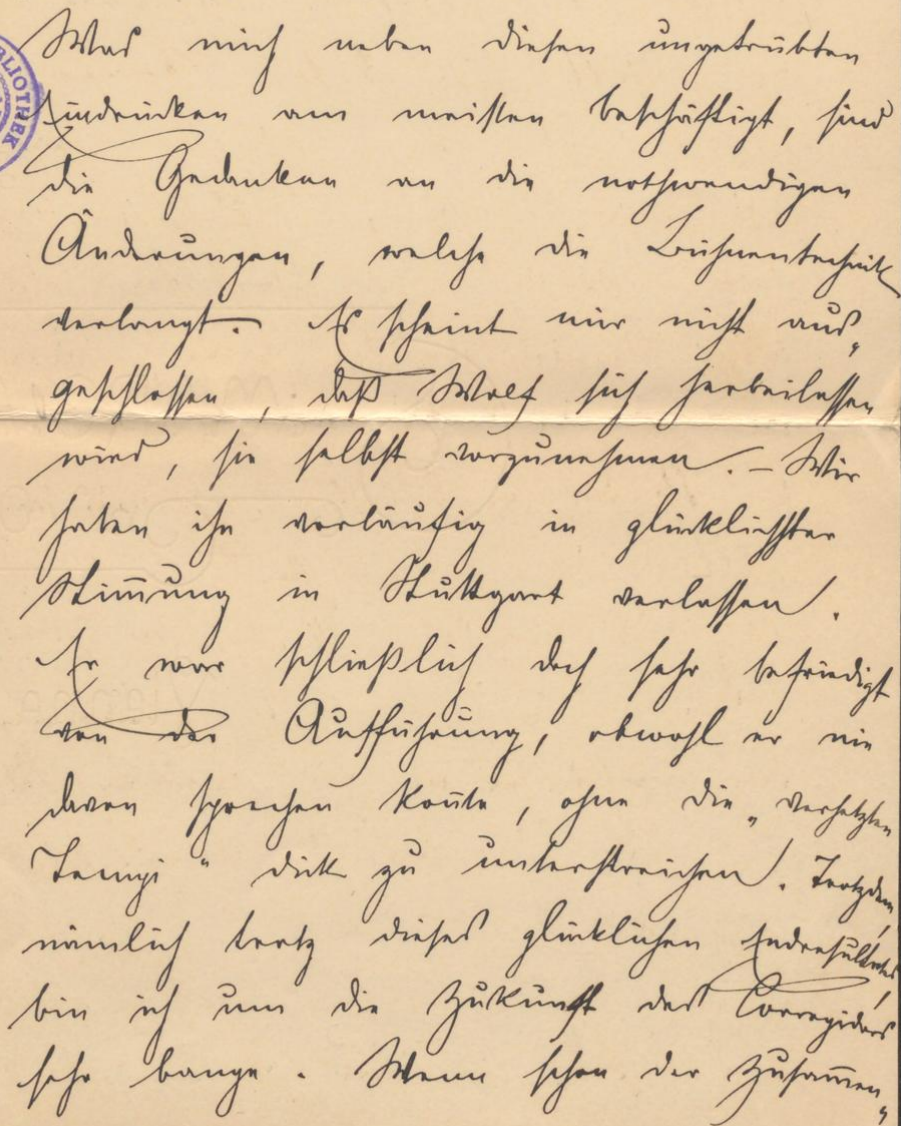 Was mich neben diesen ungetrübten
Eindrücken am meisten beschäftigt, sind
die Gedanken an die nothwendigen
Änderungen, welche die Bühnentechnik
verlangt. Es scheint mir nicht aus„
geschlossen, daß Wolf sich herbeilassen
wird, sie selbst vorzunehmen. – Wir
haben ihn vorläufig in glücklichster
Stim̅ung in Stuttgart verlassen.
Er war schließlich doch sehr befriedigt
von der Aufführung, obwohl er nie
davon sprechen kon̅te, ohne die „verhetzten
Tempi“ dick zu unterstreichen. Trotzdem,
nämlich trotz dieses glücklichen Endresultates,
bin ich um die Zukunft des Corregidors
sehr bange. Wenn schon der Zusam̅en„
BLIOTHEK